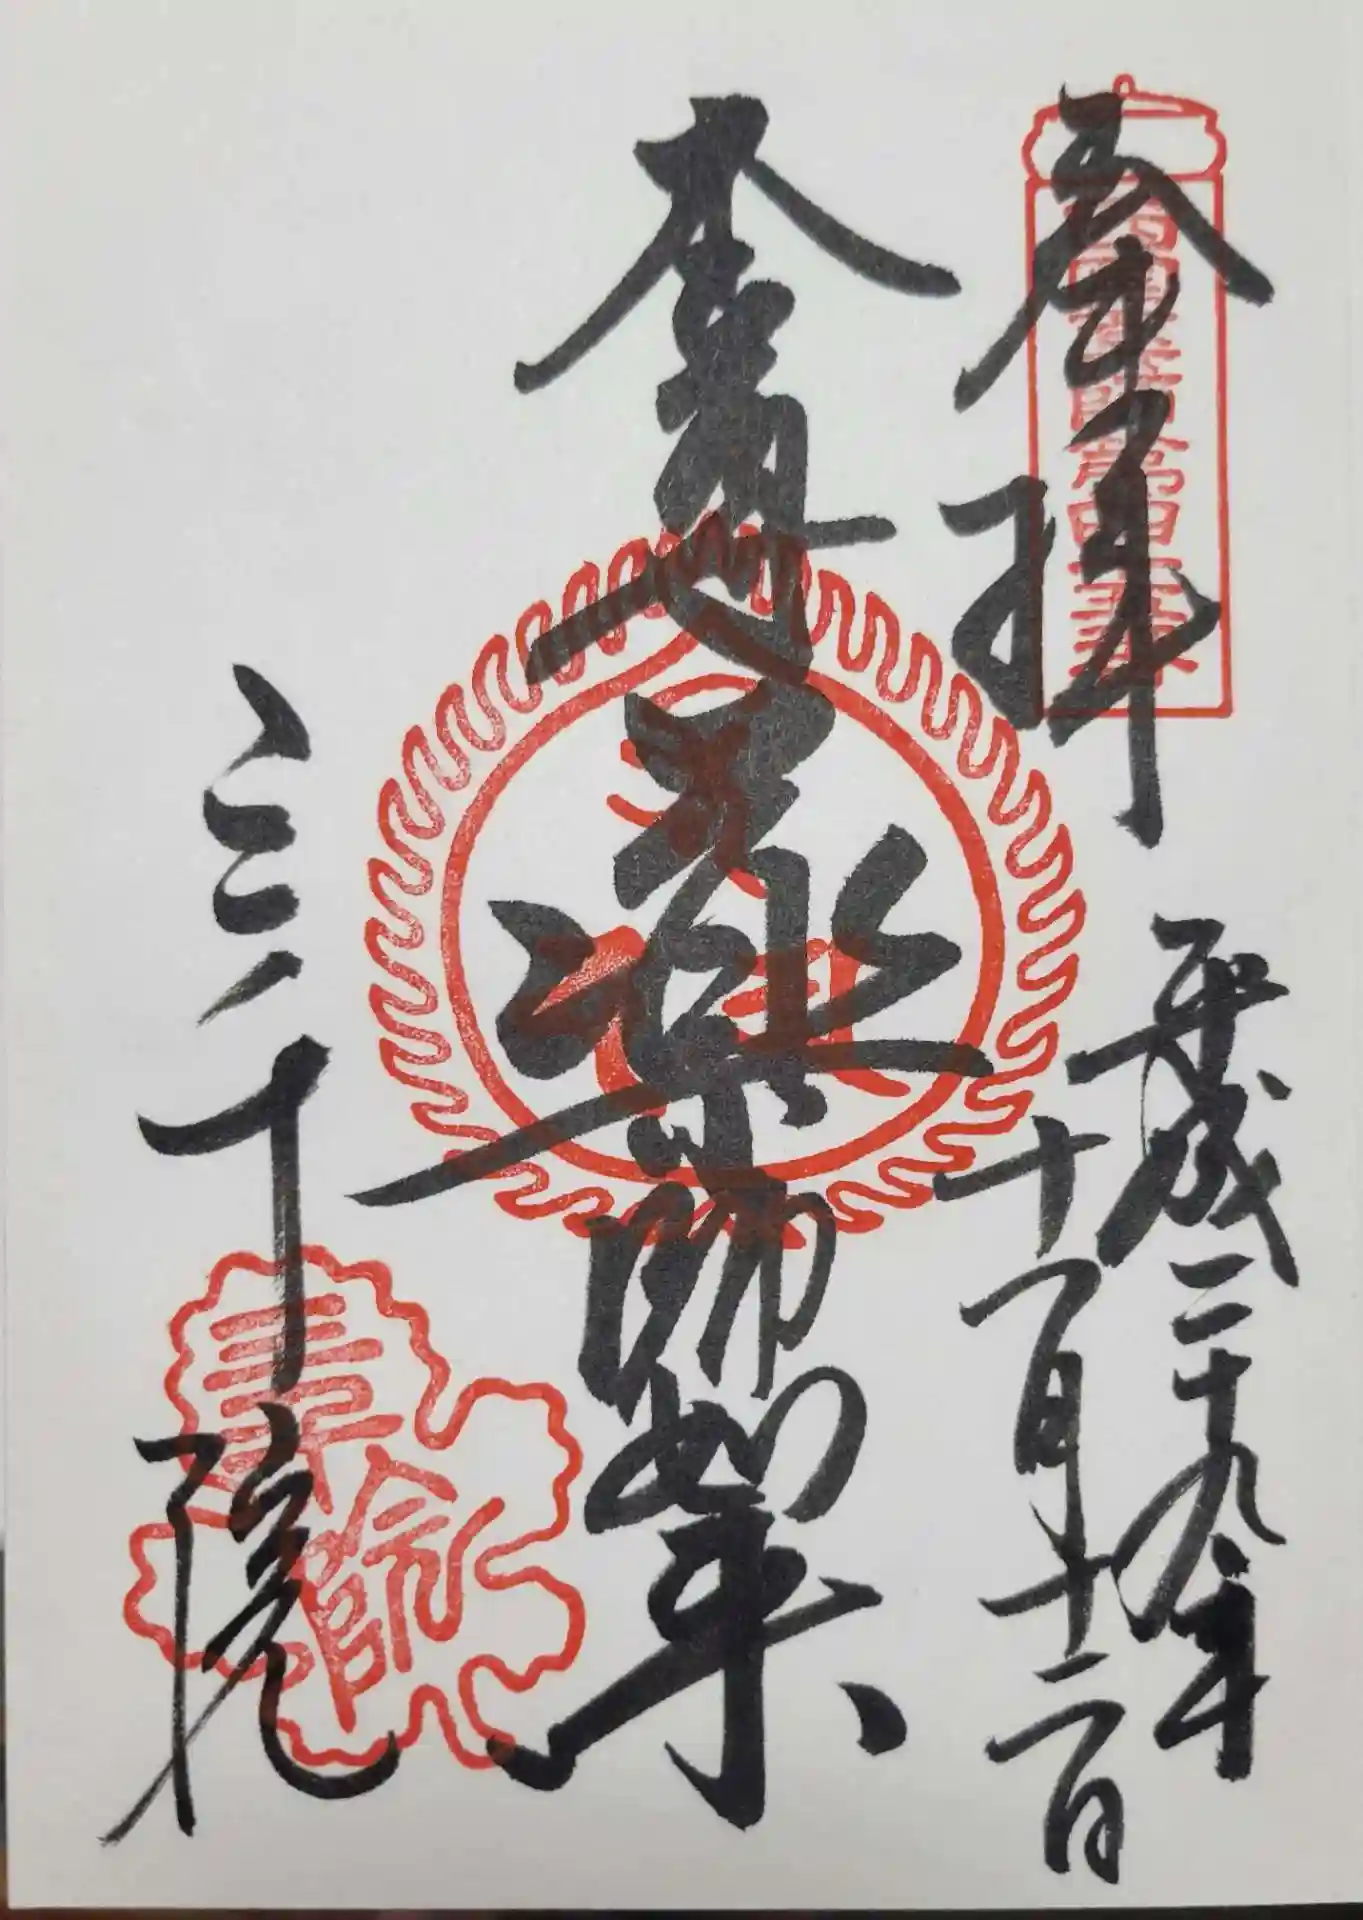 奉拝
平成二十九年
十一月十二日
本尊
薬師如来
三千院